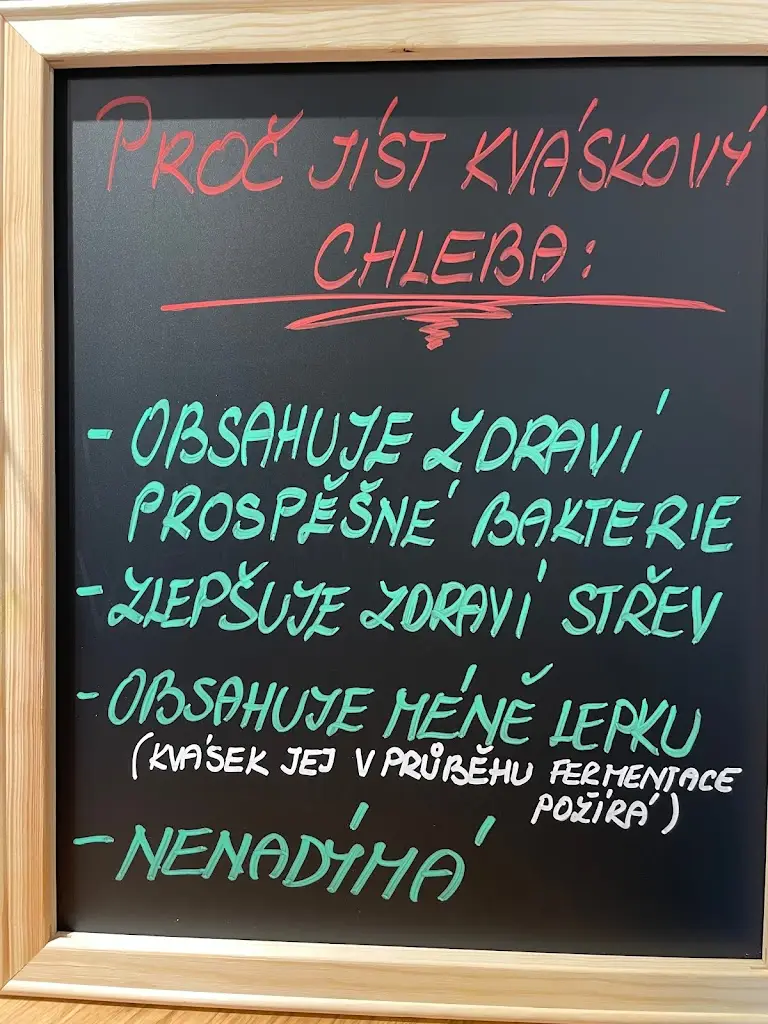 PROČ JÍST KVÁSKOVÝ
CHLEBA:
- OBSAHUJE ZDRAVÍ
PROSPĚŠNÉ BAKTERIE
- ZLEPŠUJE ZDRAVÍ STŘEV
- OBSAHUJE MÉNĚ LEPKU
(KVÁSEK JEJ V PRŮBĚHU FERMENTACE
POŽÍRÁ)
- NENADÝMÁ